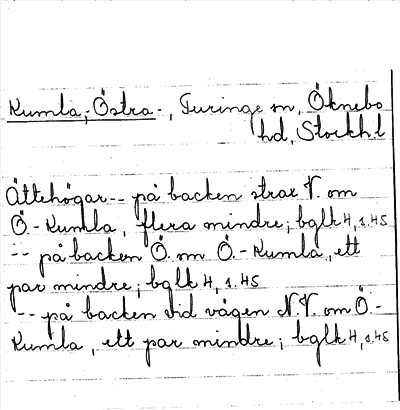 Kumla, Östra -, Turinge sn, Öknebo
hd, Stockh. l
Ättehögar -- på backen strax V. om
Ö. - Kumla, flera mindre; bglk 4, 1.45
-- på backen Ö. om Ö. - Kumla, ett
par mindre; bglk 4, 1.45
-- på backen vid vägen N.V. om Ö. -
Kumla, ett par mindre; bglk 4, 1.45